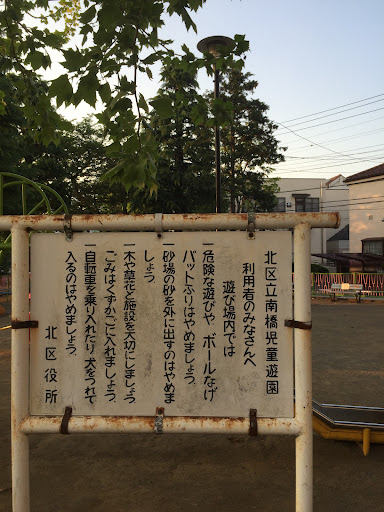 北区立南橋児童遊園
利用者のみなさんへ
遊び場内では
一危険な遊びや、ボールなげ
バットふりはやめましょう。
一砂場の砂を外に出すのはやめま
しょう。
一木や草花と施設を大切にしましょう。
ごみはくずかごに入れましょう。
一自転車を乗り入れたり、犬をつれて
入るのはやめましょう。
北区役所